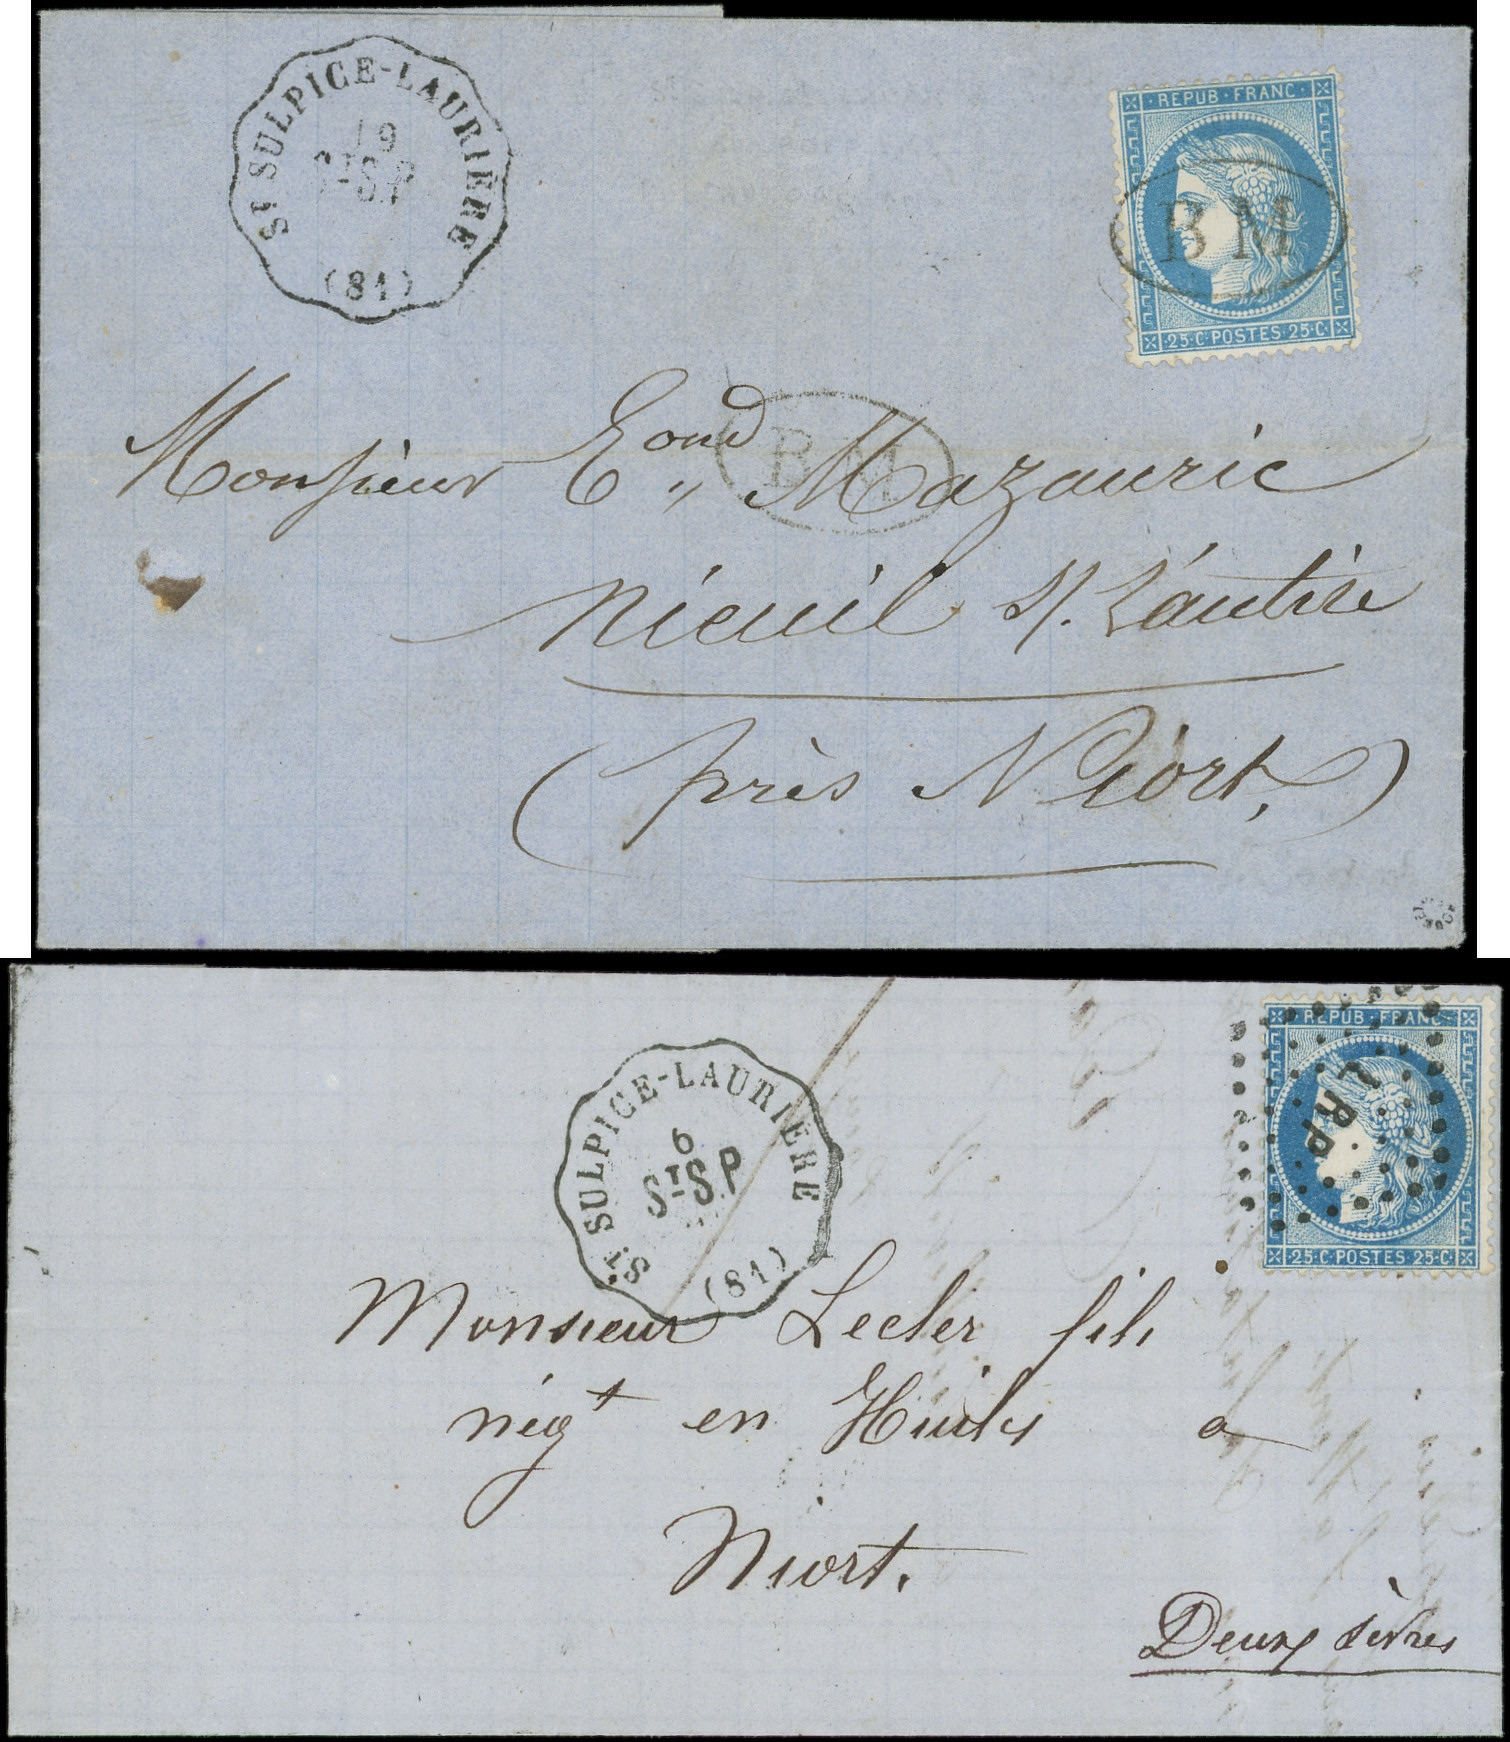 ST SULPICE-LAURIÈRE
19
STSP
(81)
REPUB·FRANC·
BM
·25·C·POSTES·25·C·
BM
Monsieur Eond Mazauric
Nieuil s/. L'autise
(près Niort,)
ST SULPICE-LAURIERE
6
STSP
(81)
REPUB·FRANC·
LPP
·25·C·POSTES 25·C·
Monsieur Lecler fils
négt en Huiles a
Niort.
Deux sèvres